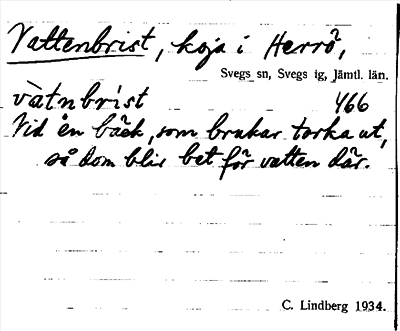 Vattenbrist, koja i Herrö,
Svegs sn, Svegs tg, Jämtl. län.
vàtnbrist 466
Vid en bäck, som brukar torka ut,
så dom blir bet för vatten där.
C. Lindberg 1934.